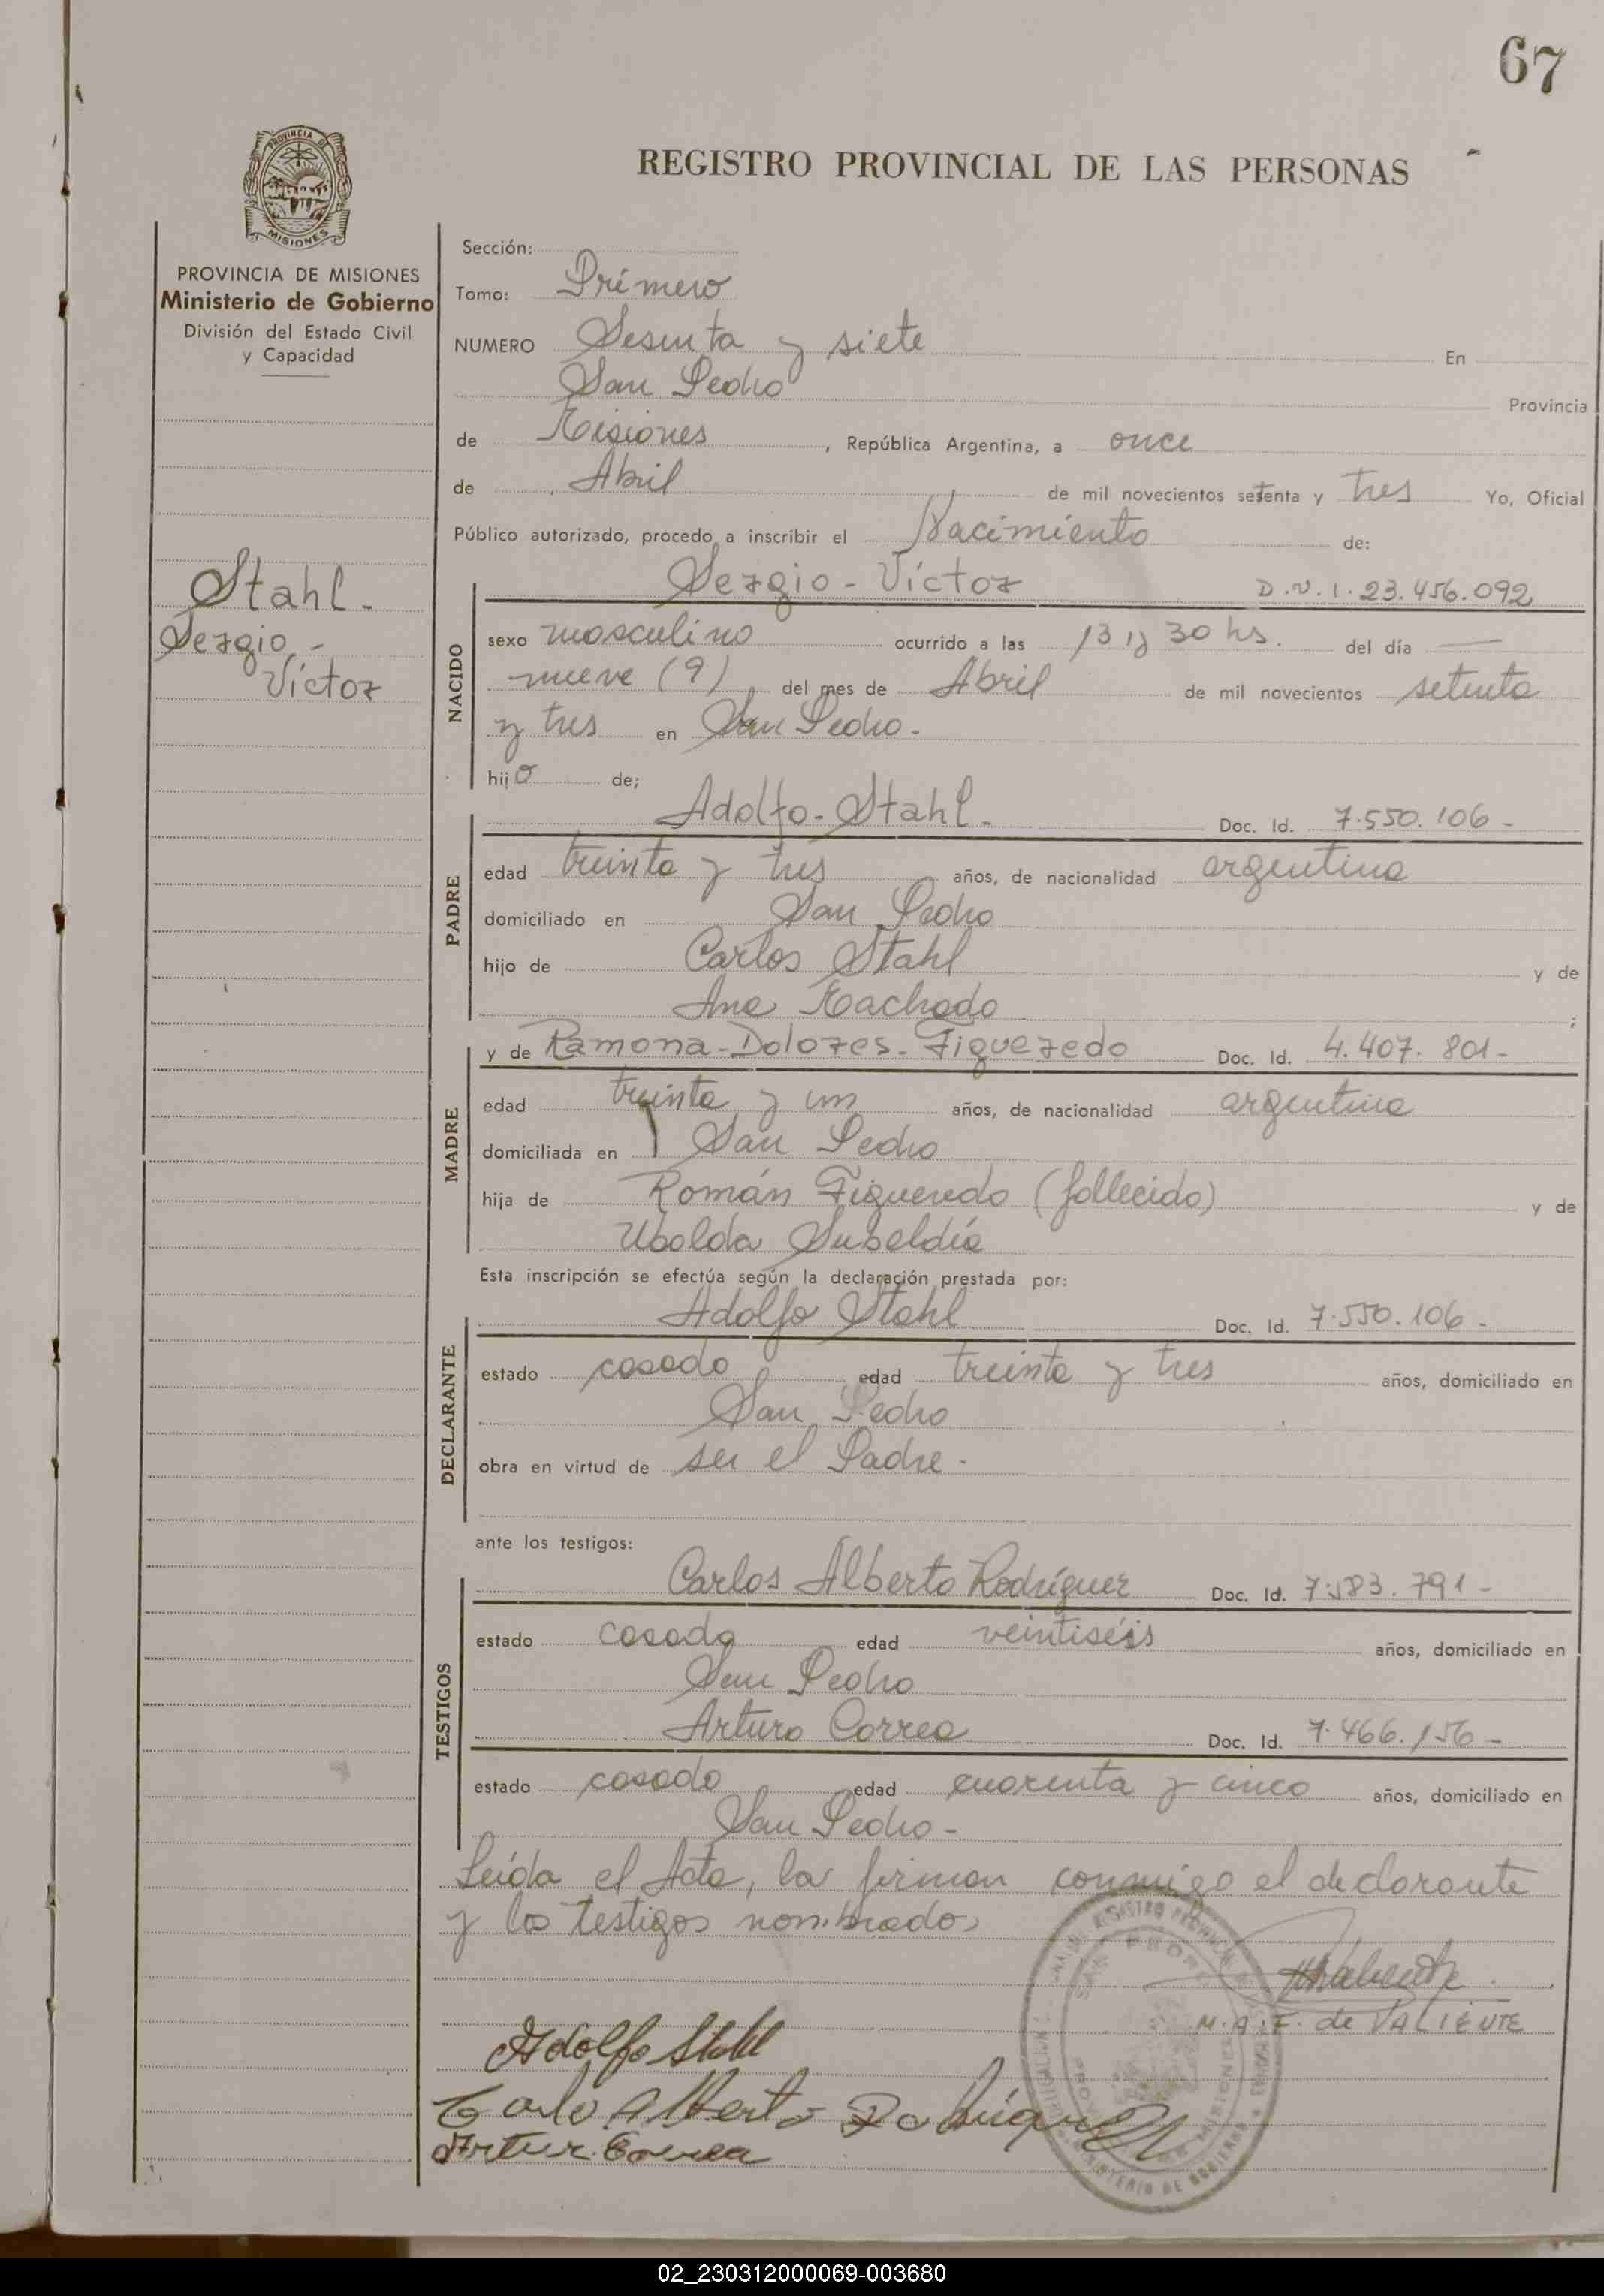 67
PROVINCIA DE
MISIONES
REGISTRO PROVINCIAL DE LAS PERSONAS
PROVINCIA DE MISIONES
Ministerio de Gobierno
División del Estado Civil
y Capacidad
Stahl -
Sergio -
Víctor
Sección:
Tomo: Primero
NUMERO Sesenta y siete En
San Pedro Provincia
de Misiones , República Argentina, a once
de Abril de mil novecientos setenta y tres Yo, Oficial
Público autorizado, procedo a inscribir el Nacimiento de:
NACIDO
Sergio - Víctor D.N.I. 23.456.092
sexo masculino ocurrido a las 13 y 30 hs. del día —
nueve (9) del mes de Abril de mil novecientos setenta
y tres en San Pedro -
hijo de;
PADRE
Adolfo - Stahl - Doc. Id. 7.550.106 -
edad treinta y tres años, de nacionalidad argentina
domiciliado en San Pedro
hijo de Carlos Stahl y de
Ana Machado ;
MADRE
y de Ramona - Dolores - Figueredo Doc. Id. 4.407.801 -
edad treinta y un años, de nacionalidad argentina
domiciliada en San Pedro
hija de Román Figueredo (fallecido) y de
Ubalda Subeldía
Esta inscripción se efectúa según la declaración prestada por:
DECLARANTE
Adolfo Stahl Doc. Id. 7.550.106 -
estado casado edad treinta y tres años, domiciliado en
San Pedro
obra en virtud de ser el Padre -
ante los testigos:
TESTIGOS
Carlos Alberto Rodríguez Doc. Id. 7.583.791 -
estado casado edad veintiséis años, domiciliado en
San Pedro
Arturo Correa Doc. Id. 7.466.156 -
estado casado edad cuarenta y cinco años, domiciliado en
San Pedro -
Leída el Acta, la firman conmigo el declarante
y los testigos nombrados
M. A. F. de VALIENTE
Adolfo Stahl
Carlo Alberto Rodriguez
Artur Correa
SAN PEDRO
02_230312000069-003680